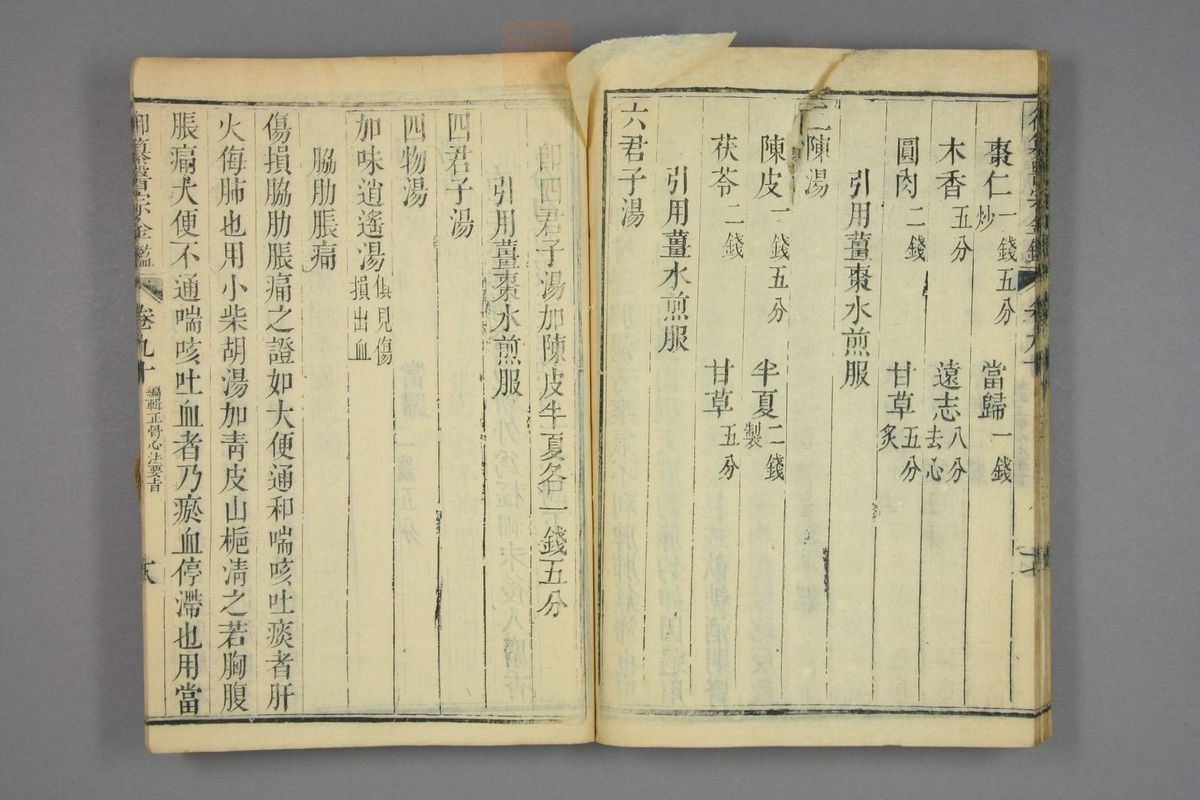 棗仁炒一錢五分 當歸一錢
木香五分 遠志去心八分
圓肉二錢 甘草炙五分
引用薑棗水煎服
二陳湯
陳皮一錢五分 半夏製二錢
茯苓二錢 甘草五分
引用薑水煎服
六君子湯
即四君子湯加陳皮半夏各一錢五分
引用薑棗水煎服
四君子湯
四物湯
加味逍遙湯俱見傷損出血
脇肋脹痛
傷損脇肋脹痛之證如大便通和喘咳吐痰者肝
火侮肺也用小柴胡湯加靑皮山梔淸之若胸腹
脹痛大便不通喘咳吐血者乃瘀血停滯也用當
御纂醫宗金鑑 卷九十 編輯正骨心法要旨